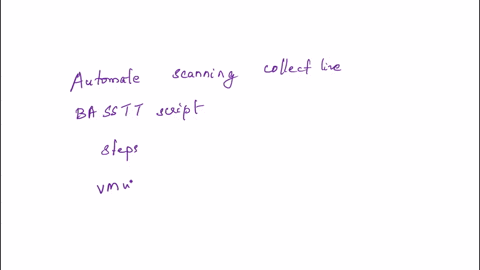 Automate scanning collect live
BASSTT script
steps
vmu